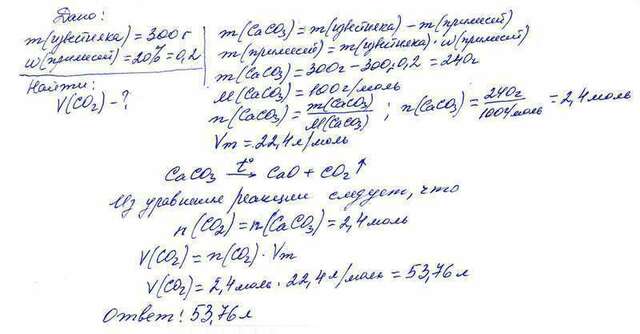 Дано:
m(известняка) = 300 г
w(примесей) = 20% = 0,2
Найти:
V(CO₂) - ?
m(CaCO₃) = m(известняка) - m(примесей)
m(примесей) = m(известняка) · w(примесей)
m(CaCO₃) = 300г - 300г · 0,2 = 240г
M(CaCO₃) = 100 г/моль
n(CaCO₃) = m(CaCO₃)/M(CaCO₃) ; n(CaCO₃) = 240г/100г/моль = 2,4 моль
Vm = 22,4 л/моль
CaCO₃ t°→ CaO + CO₂↑
Из уравнение реакции следует, что
n(CO₂) = n(CaCO₃) = 2,4 моль
V(CO₂) = n(CO₂) · Vm
V(CO₂) = 2,4 моль · 22,4 л/моль = 53,76 л
Ответ: 53,76 л